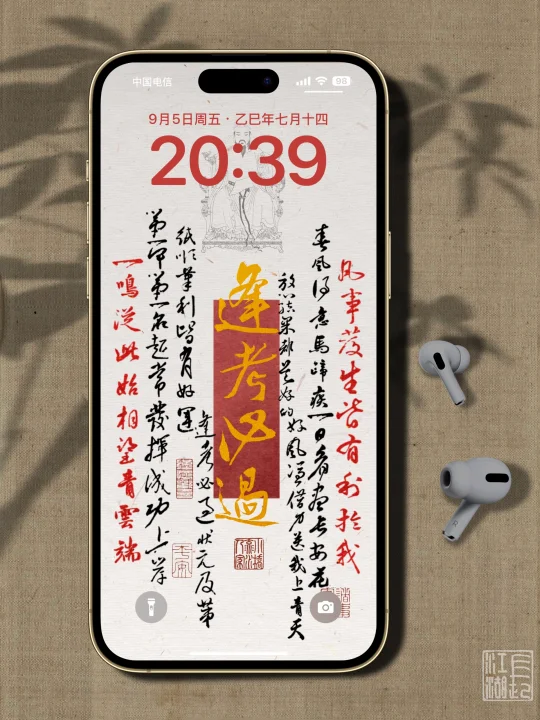 中国电信
98
9月5日周五 · 乙巳年七月十四
20:39
凡事發生皆有利於我
春風得意馬蹄疾一日看盡長安花
放心結果都是好的好風憑借力送我上青天
逢考必過
逢考必过状元及第
纸顺筆利皆有好運
第一甲第一名超常發揮成功上岸
一鳴從此始相望青雲端
江湖